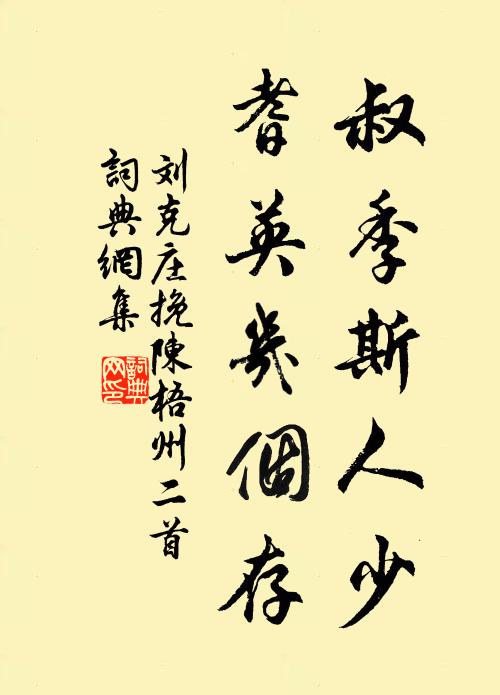 叔季斯人少
耆英幾個存
刘克庄挽陳梧州二首
詞典網集
詞典网印